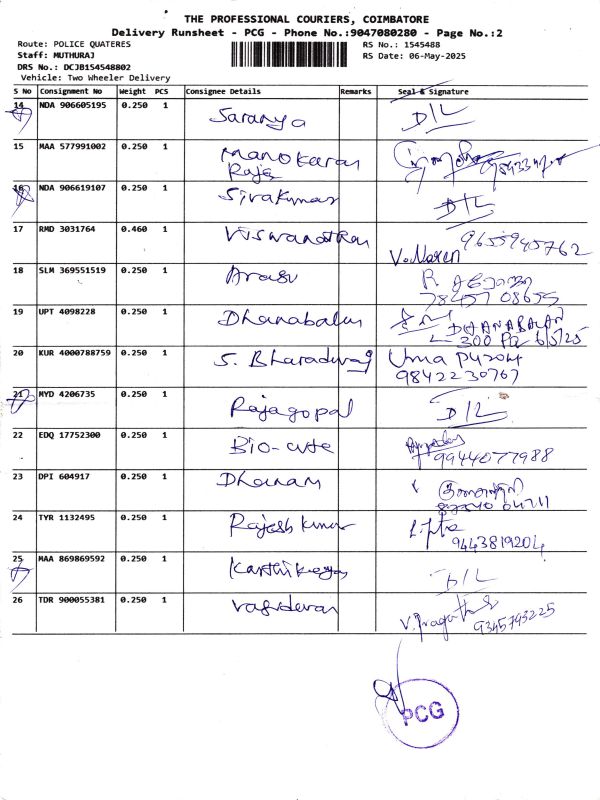 THE PROFESSIONAL COURIERS, COIMBATORE
Delivery Runsheet - PCG - Phone No.:9047080280 - Page No.:2
Route: POLICE QUATERES
RS No.: 1545488
Staff: MUTHURAJ
RS Date: 06-May-2025
DRS No.: DCJB154548802
Vehicle: Two Wheeler Delivery
S No Consignment No Weight PCS Consignee Details Remarks Seal & Signature
14 NDA 906605195 0.250 1 Saranya D/L
15 MAA 577991002 0.250 1 Manokaran
Raja
16 NDA 906619107 0.250 1 Sivakumar D/L
17 RMD 3031764 0.460 1 Viswanathan 9655945762
V. Naren
18 SLM 369551519 0.250 1 Arasu R
78457 08655
19 UPT 4098228 0.250 1 Dhanabalan DHANABALAN
300 6/5/25
20 KUR 4000788759 0.250 1 S. Bharadwaj Uma
98422 30767
21 MYD 4206735 0.250 1 Rajagopal D/L
22 EDQ 17752300 0.250 1 Bio-cute
9944077988
23 DPI 604917 0.250 1 Dhanam
24 TYR 1132495 0.250 1 Rajesh kumar
9443819204
25 MAA 869869592 0.250 1 Karthikeyan D/L
26 TDR 900055381 0.250 1 Vasudevan 9345743225
PCG